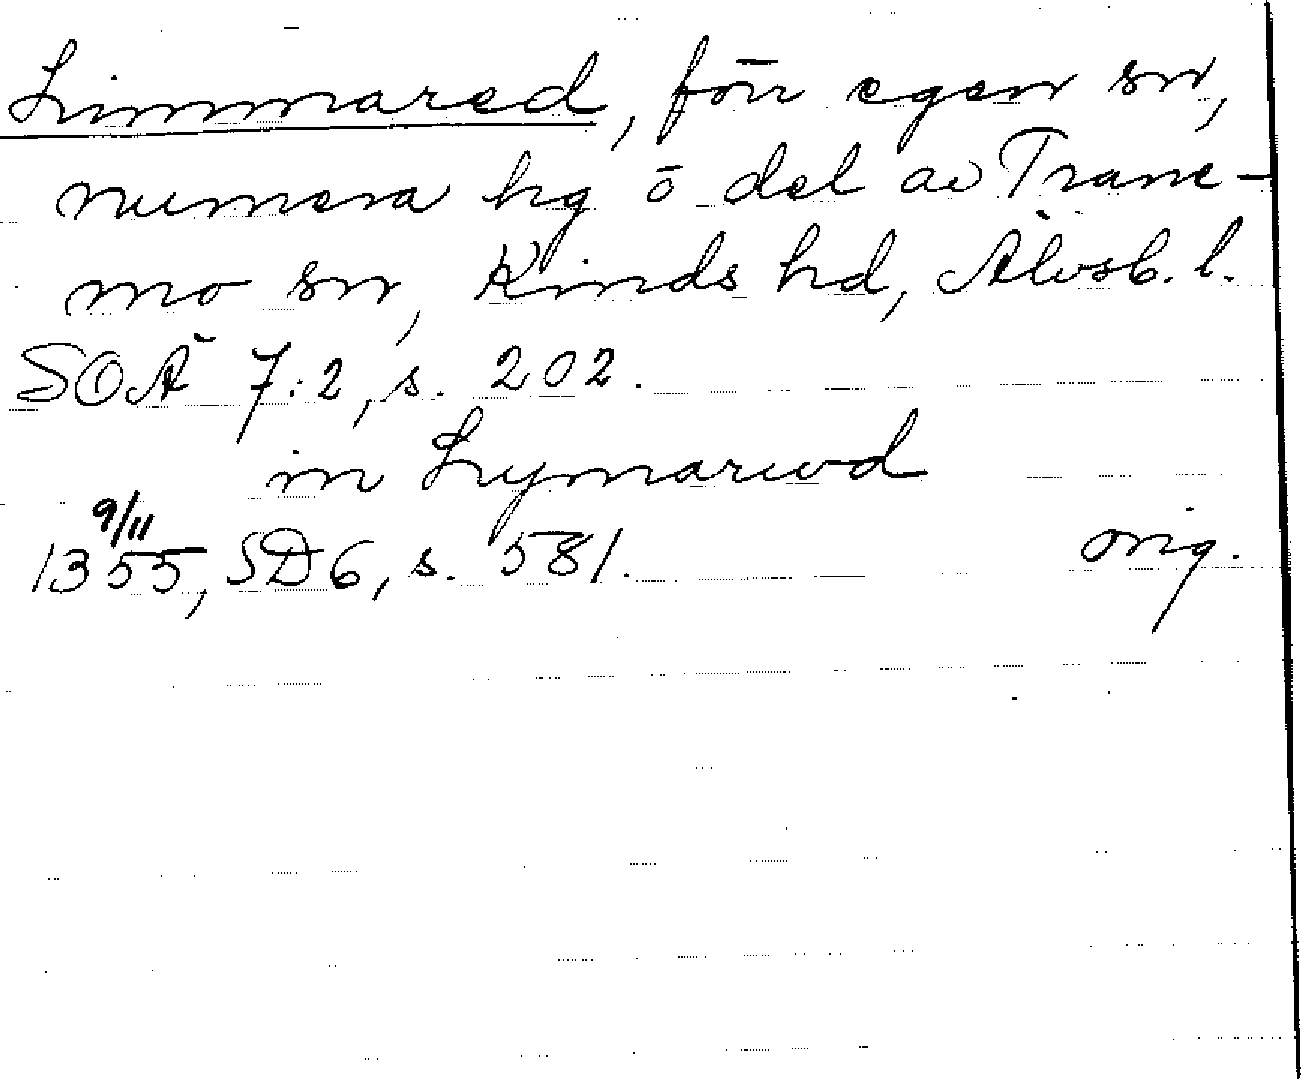 Limmared, förr egen sn,
numera hg ö del av Trane-
mo sn, Kinds hd, Älvsb. l.
SOÄ 7:2, s. 202.
in Lymarwd
9/11
1355, SD 6, s. 581. orig.